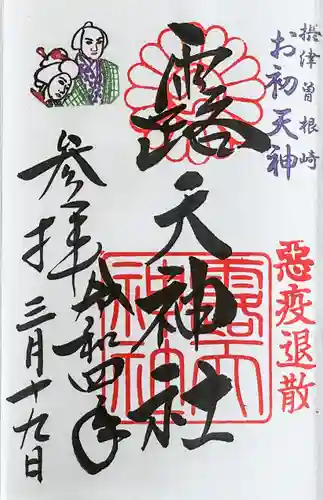 摂津曽根崎
お初天神
惡疫退散
露天神社
露天
神社
参拝
令和四年
三月十九日